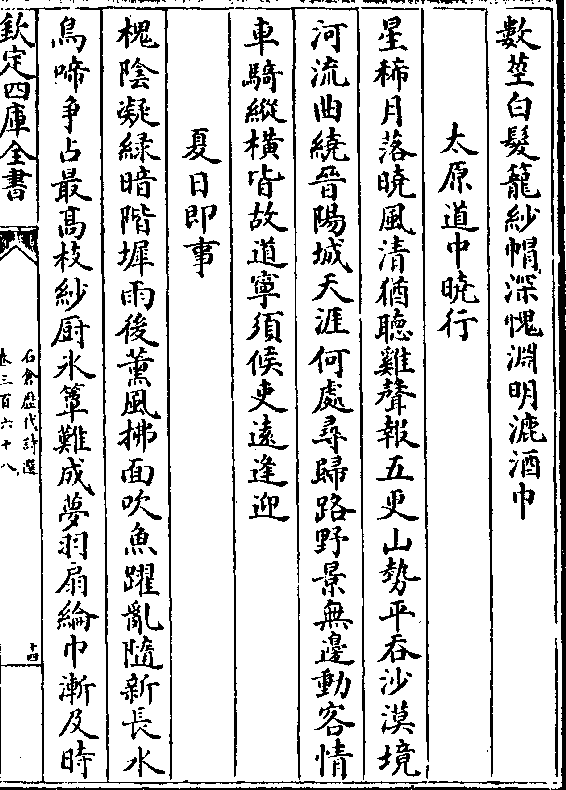 數莖白髮籠紗帽深愧淵明漉酒巾
太原道中曉行
星稀月落曉風清猶聽雞聲報五更山勢平吞沙漠境
河流曲繞晉陽城天涯何處尋歸路野景無邊動客情
車騎縱橫皆故道寧須候吏遠逢迎
夏日即事
槐陰凝綠暗階墀雨後薰風拂面吹魚躍亂隨新長水
鳥啼爭占最高枝紗厨氷簟難成夢羽扇綸巾漸及時
欽定四庫全書
石倉歷代詩選
卷三百六十八
十四